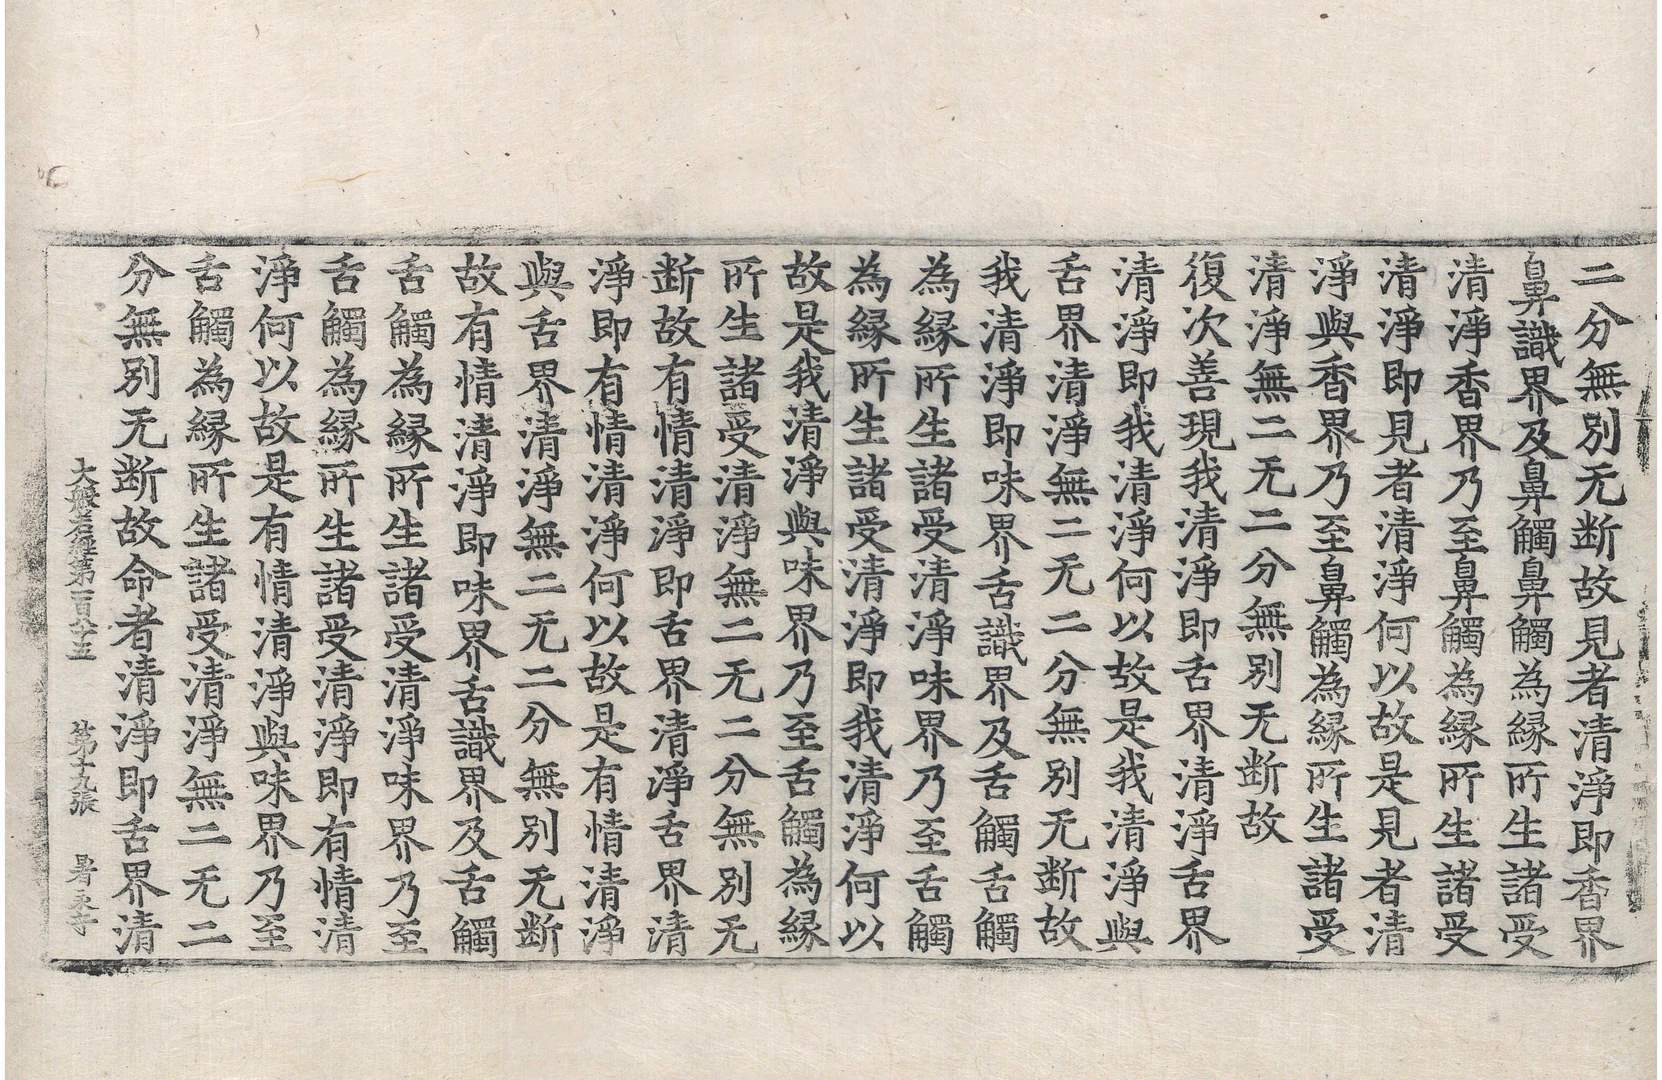 二分無別无断故見者清淨即香界
鼻識界及鼻觸鼻觸為縁所生諸受
清淨香界乃至鼻觸為縁所生諸受
清淨即見者清淨何以故是見者清
淨與香界乃至鼻觸為縁所生諸受
清淨無二无二分無别无断故
復次善現我清淨即舌界清淨舌界
清淨即我清淨何以故是我清淨與
舌界清淨無二无二分無別无断故
我清淨即味界舌識界及舌觸舌觸
為縁所生諸受清淨味界乃至舌觸
為縁所生諸受清淨即我清淨何以
故是我清淨與味界乃至舌觸為縁
所生諸受清淨無二无二分無別无
断故有情清淨即舌界清淨舌界清
淨即有情清淨何以故是有情清淨
與舌界清淨無二无二分無別无断
故有情清淨即味界舌識界及舌觸
舌觸為縁所生諸受清淨味界乃至
舌觸為縁所生諸受清淨即有情清
淨何以故是有情清淨與味界乃至
舌觸為縁所生諸受清淨無二无二
分無別无断故命者清淨即舌界清
大般若經第一百八十五 第十九張